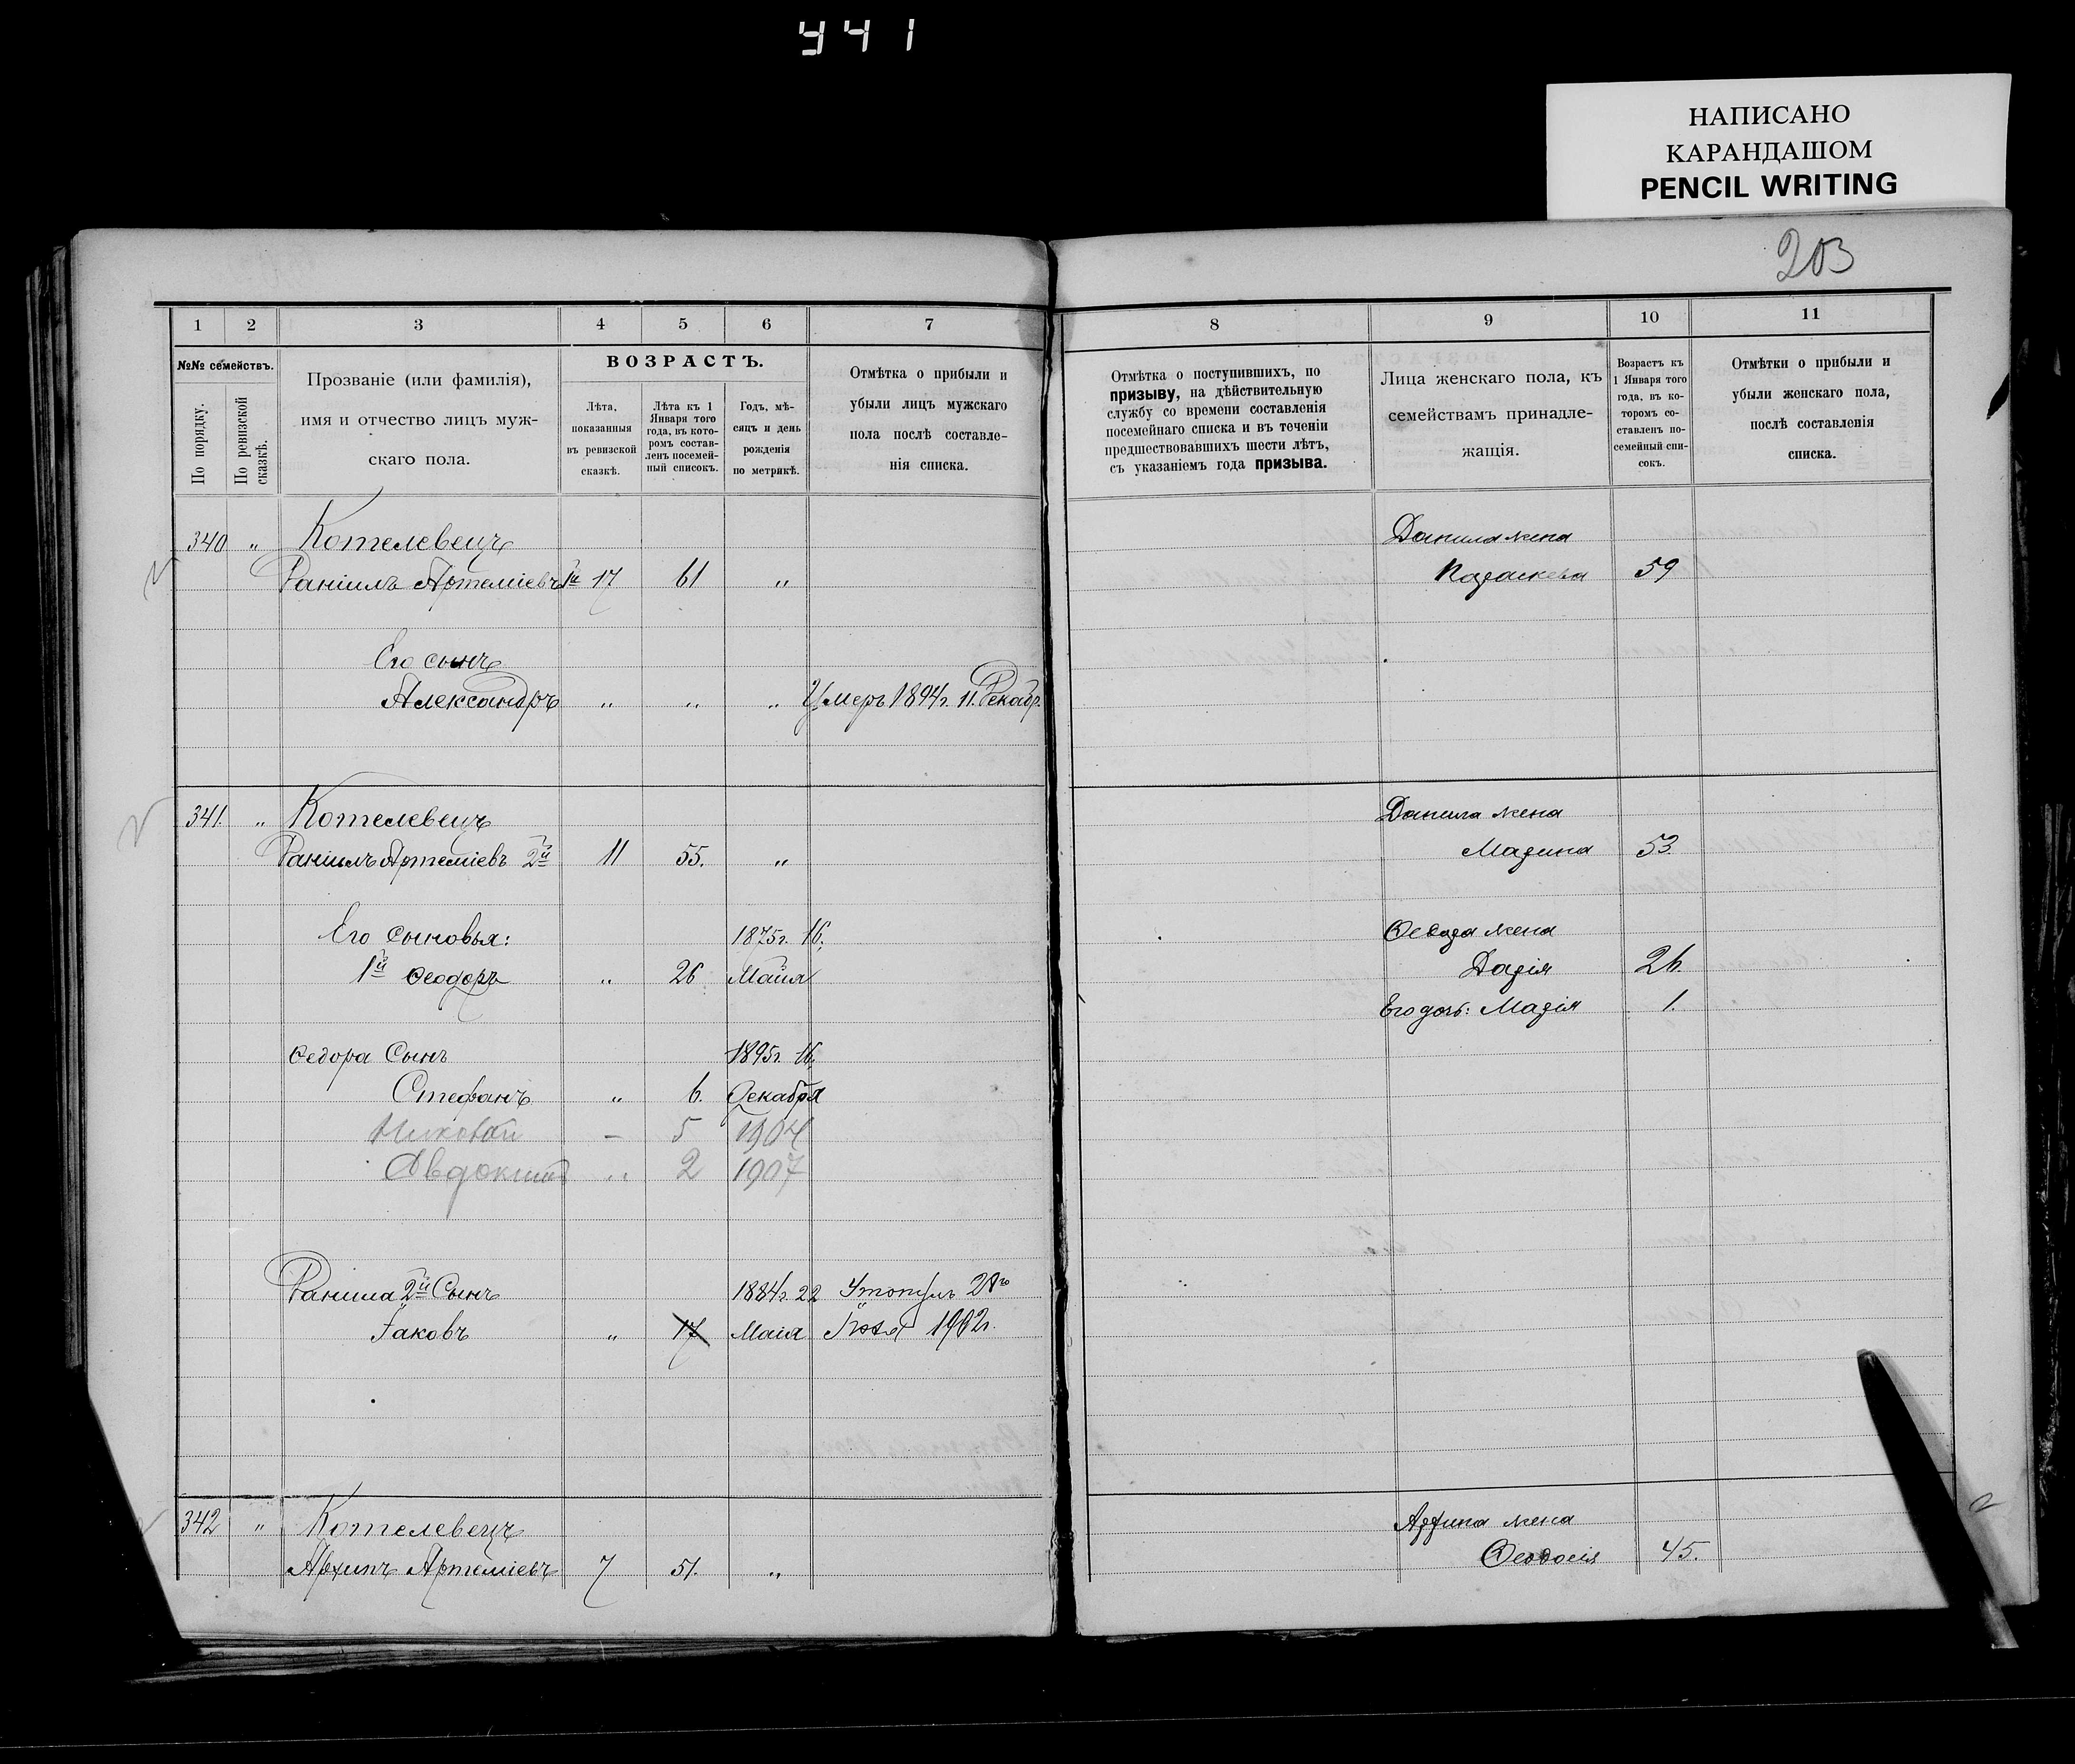 441
НАПИСАНО
КАРАНДАШОМ
PENCIL WRITING
203
1 2 3 4 5 6 7
№№ семействъ.
По порядку.
По ревизской сказкѣ.
Прозваніе (или фамилія),
имя и отчество лицъ муж-
скаго пола.
ВОЗРАСТЪ.
Лѣта,
показанныя
въ ревизской
сказкѣ.
Лѣта къ 1
Января того
года, въ кото-
ромъ состав-
ленъ посемей-
ный списокъ.
Годъ, мѣ-
сяцъ и день
рожденія
по метрикѣ.
Отмѣтка о прибыли и
убыли лицъ мужскаго
пола послѣ составле-
нія списка.
340 " Котелевецъ
Даніилъ Артеміевъ 1й 17 61 "
Его сынъ
Александръ " " " Умеръ 1894г. 11. Декабр.
341. " Котелевецъ
Даніилъ Артеміевъ 2й 11 55. "
Его сыновья: 1875г. 16.
1й Ѳеодоръ " 26 Майя
Ѳедора Сынъ 1895г. 16.
Стефанъ " 6. Декабря
Николай – 5 1904
Авдокимъ " 2 1907
Данила 2й Сынъ 1884г. 22 Утонулъ
Іаковъ " 17 Маія 1902г.
342 " Котелевецъ
Архипъ Артеміевъ 7 51. "
8 9 10 11
Отмѣтка о поступившихъ, по
призыву, на дѣйствительную
службу со времени составленія
посемейнаго списка и въ теченіи
предшествовавшихъ шести лѣтъ,
съ указаніемъ года призыва.
Лица женскаго пола, къ
семействамъ принадле-
жащія.
Возрастъ къ
1 Января того
года, въ ко-
торомъ со-
ставленъ по-
семейный спи-
сокъ.
Отмѣтки о прибыли и
убыли женскаго пола,
послѣ составленія
списка.
Данила жена
Параскева 59
Данила жена
Марина 53.
Ѳедора жена
Дарія 26.
Его дочь: Марія 1.
Архипа жена
Ѳеодосія 45.